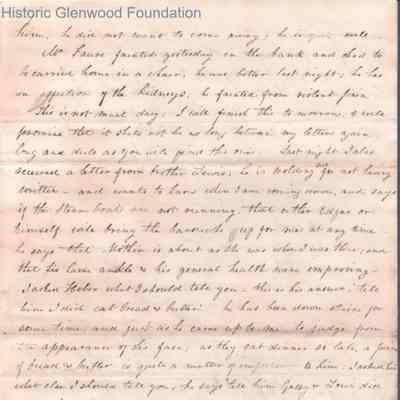 Historic Glenwood Foundation
him, he did not want to come away, he is quite
Mr. fainted yesterday in the bank and had to
be carried home in a chair, he was better last night, he has
an affection of the Kidneys, he fainted from violent pain
This is not mail day, I will finish this to morrow, & will
promise that it shall not be so long between my letters again
long and dull as you will find this one. Last night I also
received a letter from brother Lewis, he is scolding me for not having
written - and wants to know when I am coming down, and says
if the Steam boats are not running, that either Edgar or
himself will bring the barouche up for me at any time
he says that Mother is about as she was when I was there, and
that his lame ankle & his general health were improving.
I asked what I should tell you - this is his answer, "tell
him I did eat bread & butter" he has been down stairs for
some time, and just as he came up to me to judge from
the appearance of his face, as they eat dinner so late, a piece
of bread & butter is quite a matter of to him. I asked him
what else I should tell you, he says tell him & Louis did